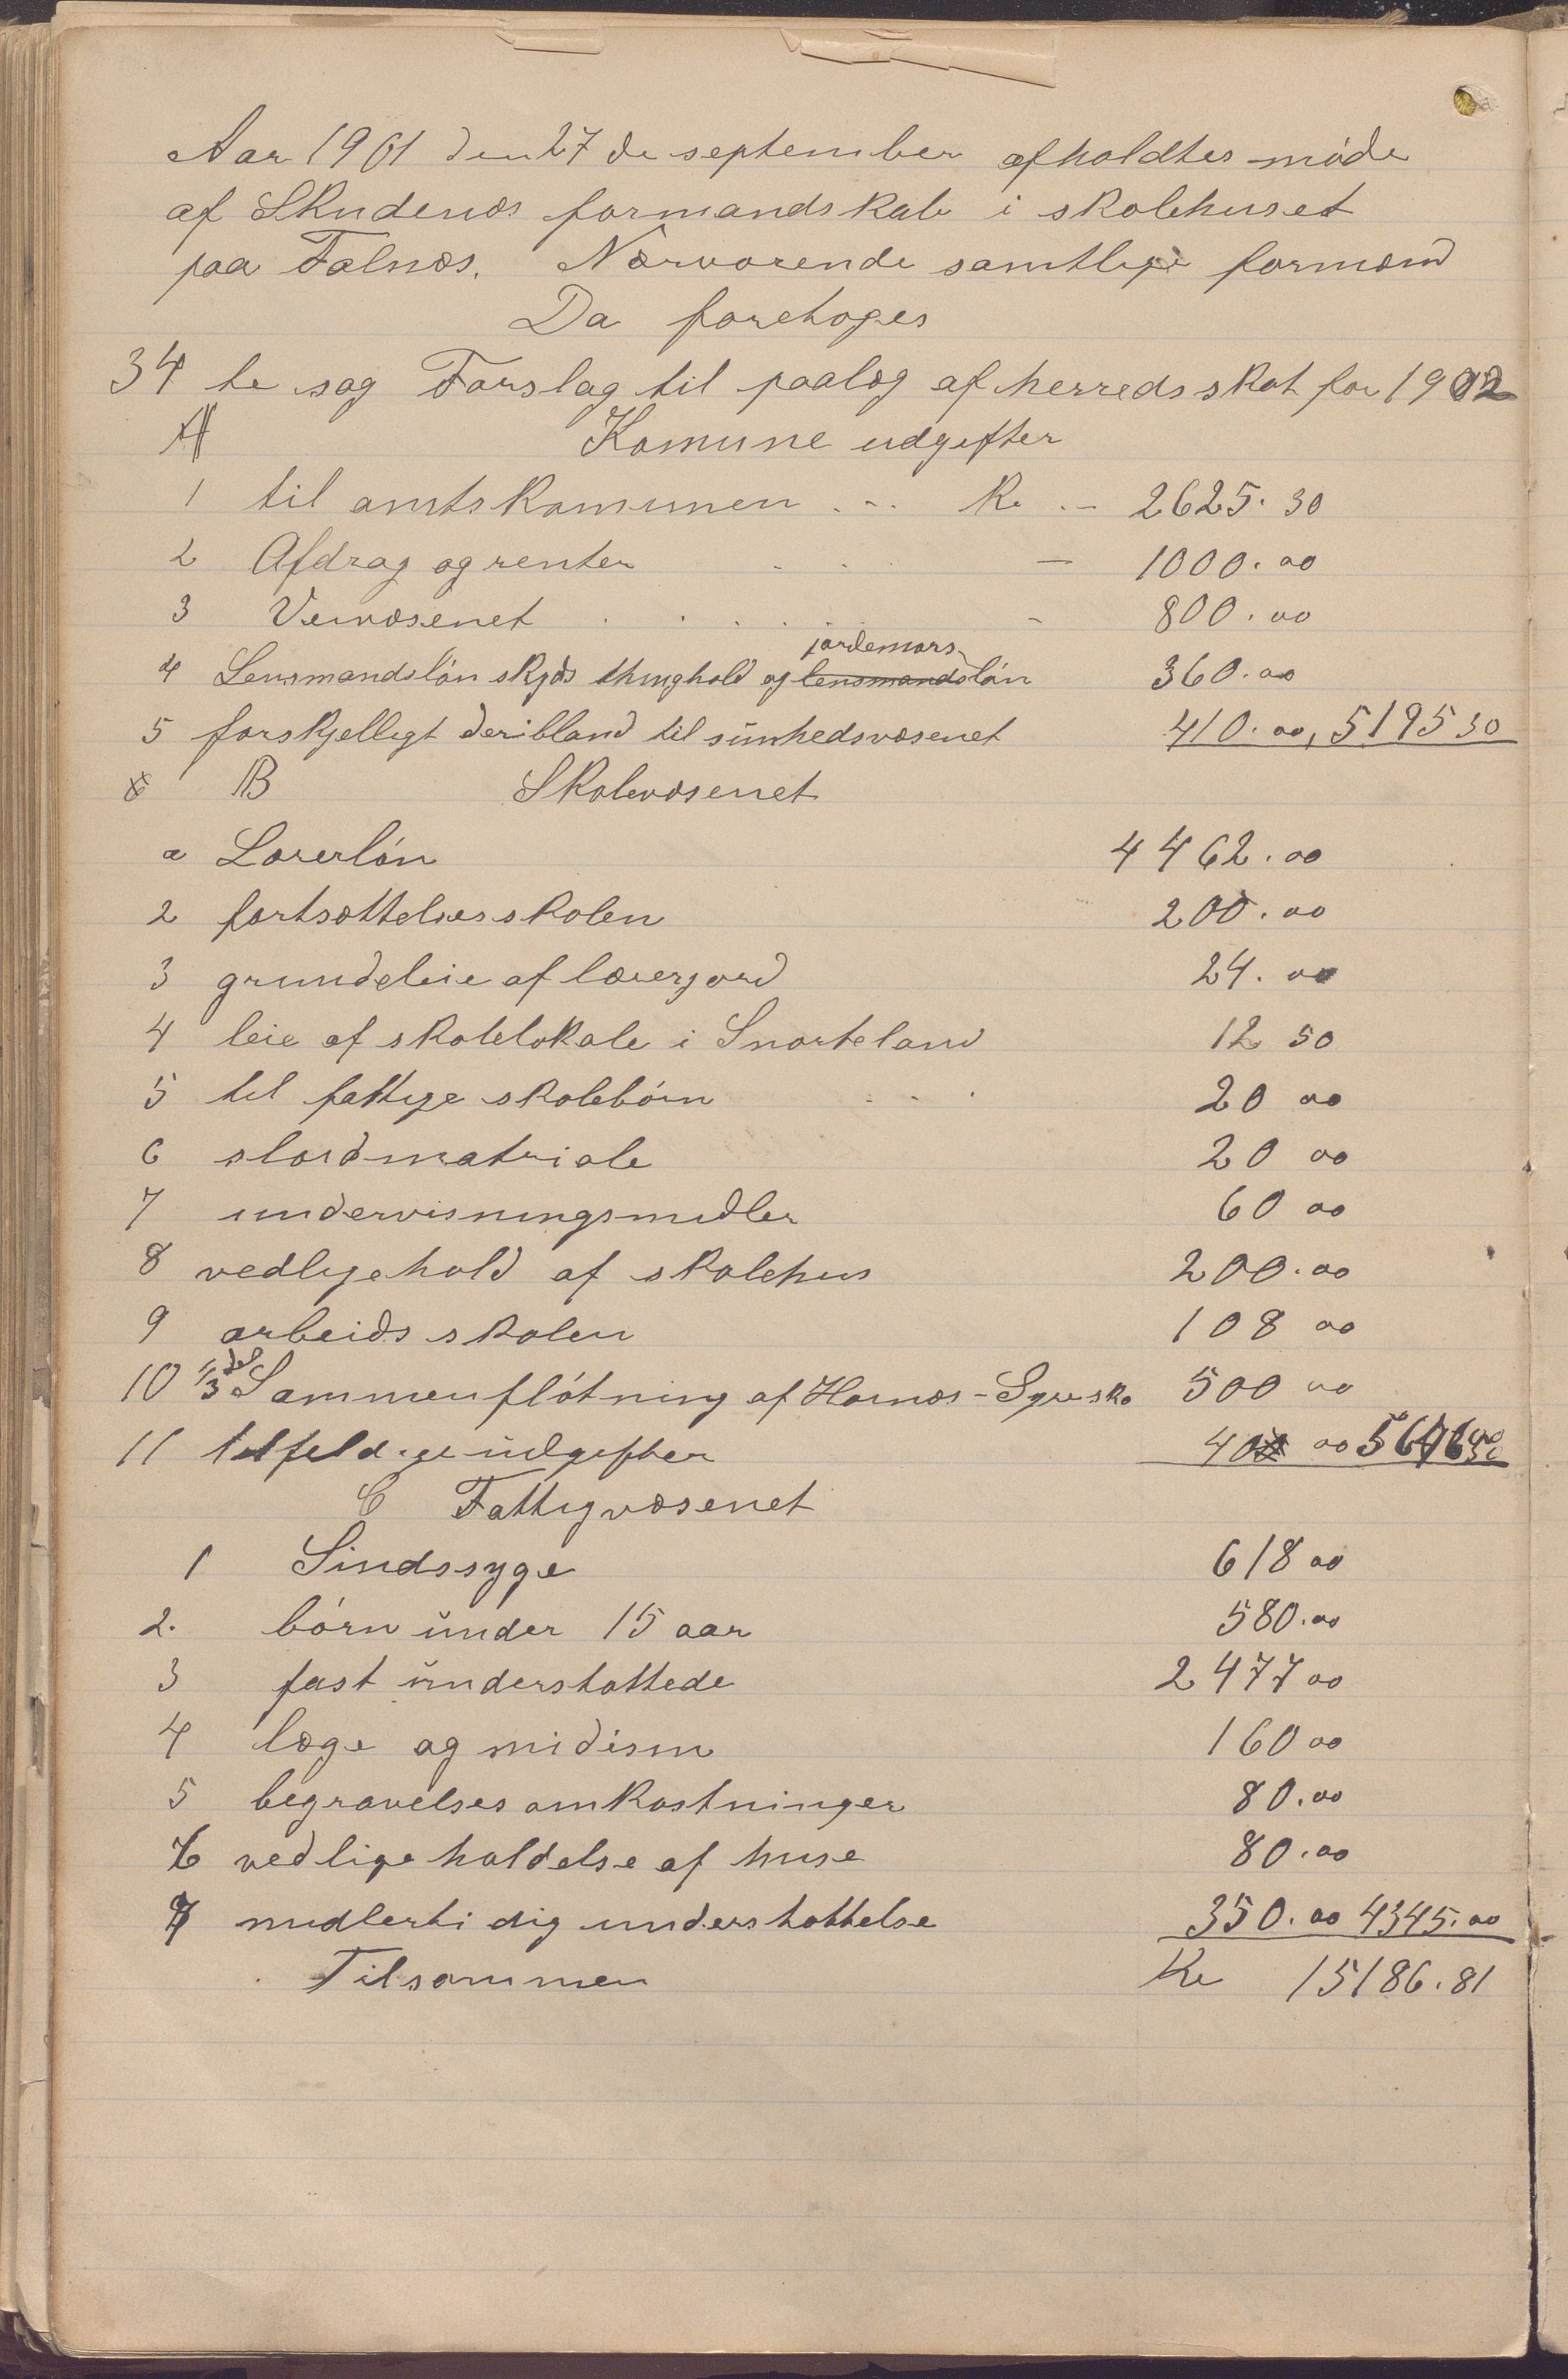 Aar 1901 den 27de september afholdtes møde
af Skudenæs formandskab i skolehuset
paa Falnæs. Nærværende samtlige formænd
Da foretoges
34 te sag Forslag til paalæg af herredsskat for 1902
A Komune udgifter
1 til amtskomunen . . . Kr. . - 2625. 30
2 Afdrag og renter . . . — 1000. 00
3 Veivæsenet . . . . . - 800. 00
jordemors
4 Lensmandsløn skyds thinghold og lensmandsløn 360. 00
5 forskjelligt deribland til sunhedsvæsenet 410. 00, 5195 30
6 B Skolevæsenet
a Lærerløn 4462. 00
2 fortsættelsesskolen 200. 00
3 grundeleie af lærerjord 24. 00
4 leie af skolelokale i Snorteland 12 50
5 til fattige skolebørn . . . 20 00
6 sløidmatriale 20 00
7 undervisningsmidler 60 00
8 vedligehold af skolehus 200. 00
9 arbeidsskolen 108 00
10 1/3 del Sammenfløtning af Hornæs - Syresko 500 00
11 tilfeldige udgifter 40 00 5646 50
C Fattigvæsenet
1 Sindssyge 618 00
2. børn under 15 aar 580. 00
3 fast understøttede 2477 00
4 læge og midisin 160 00
5 begravelses omkostninger 80. 00
6 vedlige holdelse af huse 80. 00
7 midlertidig understøttelse 350. 00 4345. 00
Tilsammen Kr 15186. 81